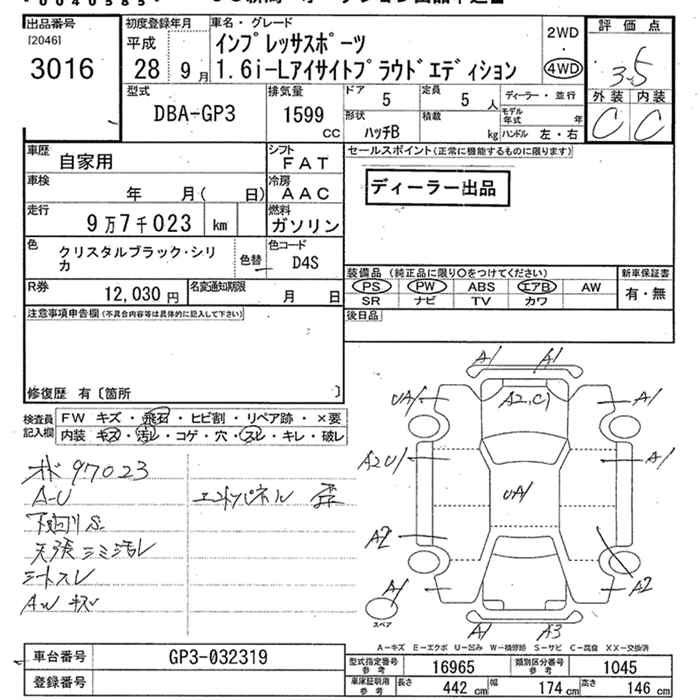 出品番号
[2046]
3016
初度登録年月
平成
28 9月
車名・グレード
インプレッサスポーツ
1.6i-Lアイサイトプラウドエディション
2WD
・
4WD
評価点
3.5
外装 内装
C C
型式
DBA-GP3
排気量
1599
CC
ドア 5
定員 5人
形状
ハッチB
積載 kg
ディーラー・並行
モデル年式 年
ハンドル 左・右
車歴
自家用
シフト
FAT
車検
年 月( 日)
冷房
AAC
走行
9万7千023 km
燃料
ガソリン
色
クリスタルブラック・シリカ
色替
色コード
D4S
R券
12,030円
名変通知期限
月 日
セールスポイント(正常に機能するものに限ります)
ディーラー出品
装備品 (純正品に限り○をつけてください)
PS PW ABS エアB AW
SR ナビ TV カワ
新車保証書
有・無
後日品
注意事項申告欄(不具合内容等は具体的に記入して下さい)
修復歴 有〔箇所 〕
検査員記入欄
FW キズ・飛石・ヒビ割・リペア跡・×要
内装 キズ・汚レ・コゲ・穴・スレ・キレ・破レ
97023
A-U
下回りS
天張シミ汚レ
シートスレ
AWキズ
A1 A1
UA1 A2,C1 A1
A2U1 UA1 A1
A2 A2
A1 A1 A3
スペア
A-キズ E-エクボ U-凹み W-補修跡 S-サビ C-腐食 XX-交換済
車台番号 GP3-032319
登録番号
型式指定番号参考 16965
類別区分番号参考 1045
車庫証明用参考 長さ 442cm 幅 174cm 高さ 146cm